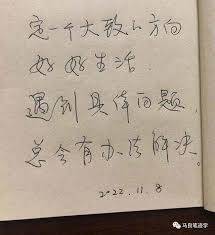 定一个大致的方向
好好生活.
遇到具体问题,
总会有办法解决。
2022.11.8
马良笔迹学